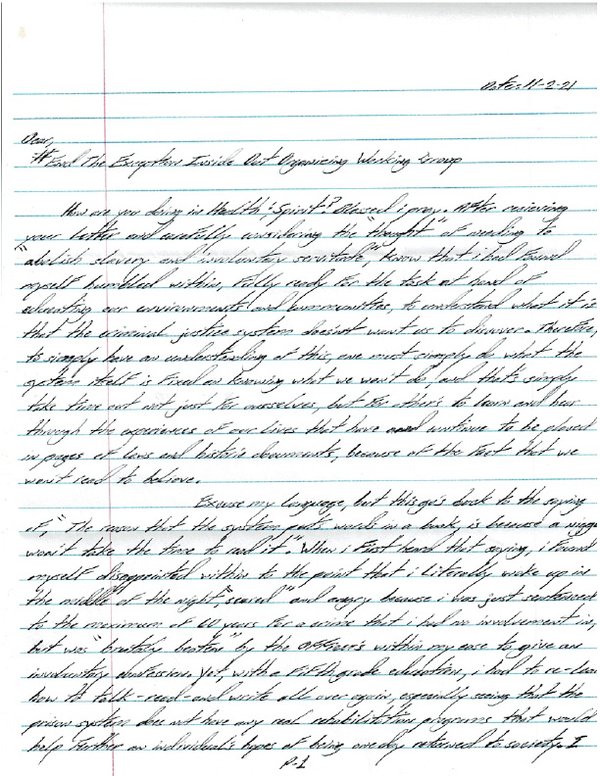 Date: 11-2-21
Dear,
#End The Exception Inside Out Organizing Working Group
How are you doing in Health & Spirit? Blessed i pray. After recieving
your letter and carefully considering the "thought" of needing to
"abolish slavery and involuntary servitude", know that i had found
myself humbled within, fully ready for the task at hand of
educating our environments and communities, to understand what it is
that the criminal justice system doesn't want us to discover. Therefore,
to simply have an understanding of this, one must simply do what the
system itself is fixed on knowing what we won't do, and that's simply
take time out not just for ourselves, but for others to learn and hear
through the experiences of our lives that have and continue to be placed
in pages of laws and historic documents, because of the fact that we
won't read to believe.
Excuse my language, but this go's back to the saying
of, "The reason that the system puts words in a book, is because a nigga
won't take the time to read it". When i first heard that saying, i found
myself disappointed within to the point that i literally woke up in
the middle of the night, "scared" and angry because i was just sentenced
to the maximum of 60 years for a crime that i had no involvement in,
but was "brutally beaten" by the officers within my case to give an
involuntary confession. Yet, with a fifth grade education, i had to re-lear
how to talk-read-and write all over again, especially seeing that the
prison system does not have any real rehabilitation programs that would
help further an individual's hopes of being one day returned to society. I
P-1